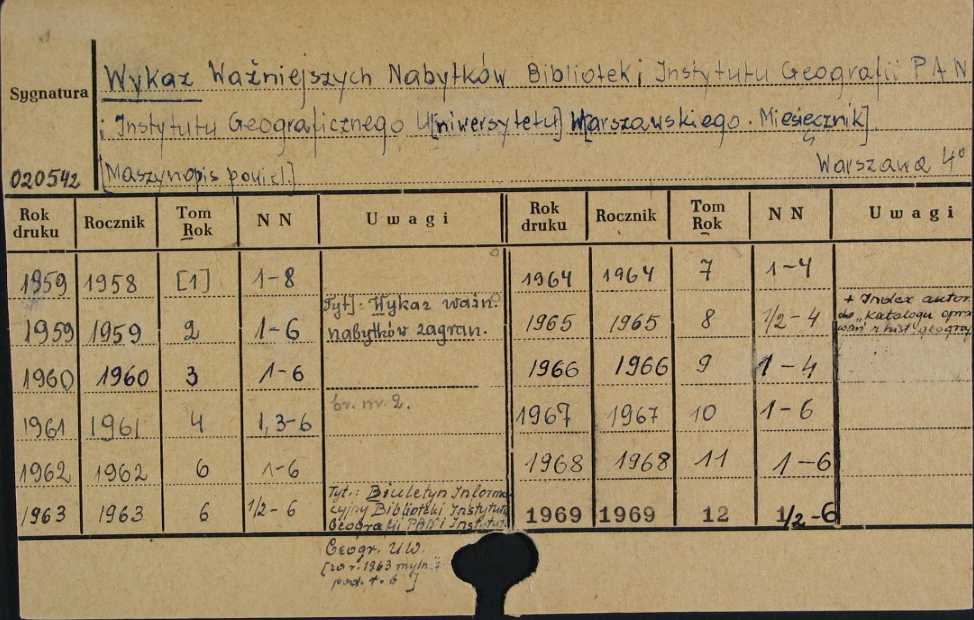 Wykaz Ważniejszych Nabytków Bibliotek i Instytutu Geografii PAN
Sygnatura
i Instytutu Geograficznego U[niwersytetu] W[arszawskiego. Miesięcznik].
[Maszynopis powiel.] Warszawa 4°
020542
Rok druku Rocznik Tom Rok NN Uwagi Rok druku Rocznik Tom Rok NN Uwagi
1959 1958 [1] 1-8 1964 1964 7 1-4
Tyt]: Wykaz ważn. nabytków zagran.
1959 1959 2 1-6 1965 1965 8 1/2-4 + Index autor. do "Katalogu
1960 1960 3 1-6 1966 1966 9 1-4
1961 1961 4 1, 3-6 br. nr. 2. 1967 1967 10 1-6
1962 1962 6 1-6 1968 1968 11 1-6
1963 1963 6 1/2-6 1969 1969 12 1/2-6
Tyt.: Biuletyn Informa-
cyjny Biblioteki Instytutu
Geografii PAN i Instytutu
Geogr. U.W.
[za r. 1963 myln.
pod. t. 6]